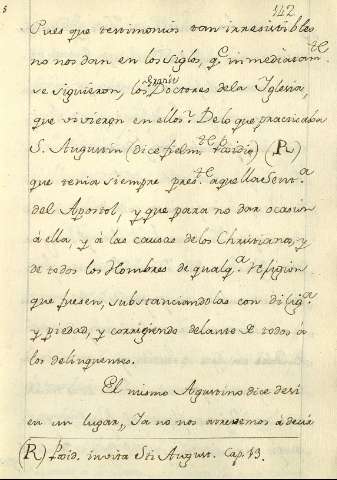 142
Pues que testimonios tan irresistibles
no nos dan en los siglos, q.e inmediatam.te
se siguieron, los Doctores de la Iglesia,
que vivieron en ellos? De lo que practicaba
S. Augustin (dice fielm.te Posidio) (R)
que tenia siempre pres.te aquella Sent.a
del Apostol, y que para no dar ocasion
á ella, y á las causas de los Christianos, y
de todos los Hombres de qualq.a religion
que fuesen, substanciandolas con dilig.a
y piedad, y corrigiendo delante de todos á
los delinquentes.
El mismo Agustino dice de si
en un lugar, Ya no nos atrevemos á decir
(R) Posid. in vita Sti August. Cap. 13.